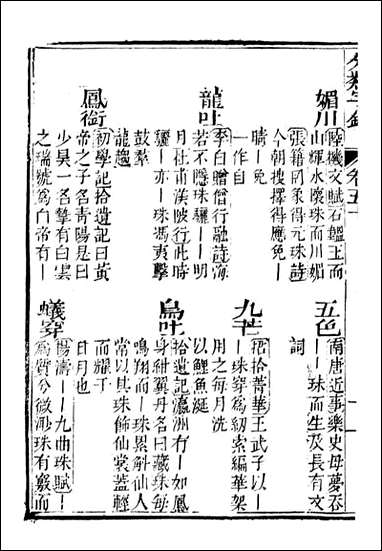 分類字錦
卷五十一
媚川
陸機文賦石韞玉而
山輝水懷珠而川媚
張籍罔象得元珠詩
今朝搜擇得應免｜
晴｜免
一作自
龍吐
李白贈僧行融詩海
若不隱珠驪｜｜明
月杜甫渼陂行此時
驪｜亦｜珠馮夷擊
鼓羣
龍趨
鳳銜
初學記拾遺記曰黃
帝之子名青陽是曰
少昊一名摯有白雲
之瑞號為白帝有｜
五色
南唐近事樂史母夢吞
｜｜珠而生及長有文
詞
九
拾菁華王武子以｜
｜珠穿為紉索編華架
用之每月洗
以鯉魚涎
鳥吐
拾遺記瀛洲有｜如鳳
身紺翼丹名曰藏珠每
鳴翔而｜珠累斛仙人
常以其珠飾仙裳蓋輕
而耀于
日月也
蟻穿
楊濤｜｜九曲珠賦｜
為質分微渺珠有竅而